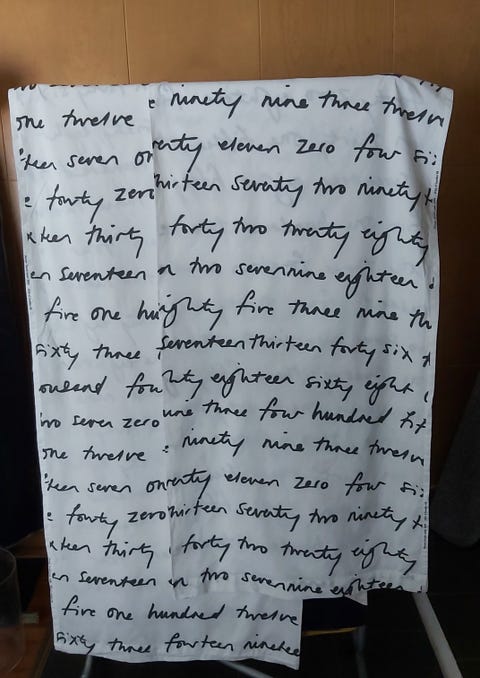 one twelve ninety nine three twelve
teen seven twenty eleven zero four
forty zero thirteen seventy two ninety
teen thirty forty two twenty eighty
seventeen two seven nine eighteen
five one eighty five three nine
sixty three seventeen thirteen forty six
eighteen sixty eight
two seven zero nine three four hundred
one twelve ninety nine three twelve
teen seven twenty eleven zero four
fowty zero thirteen seventy two ninety
teen thirty forty two twenty eighty
seventeen two seven nine eighteen
five one hundred twelve
sixty three fourteen